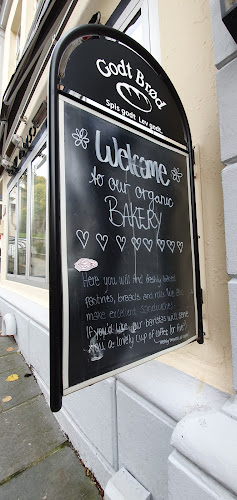 Godt Brød
Spis godt. Lev godt.
Welcome
to our organic
BAKERY
Here you will find freshly baked
pastries, breads and rolls. We also
make excellent sandwiches!
If you'd like, our baristas will serve
you a lovely cup of coffee for five!